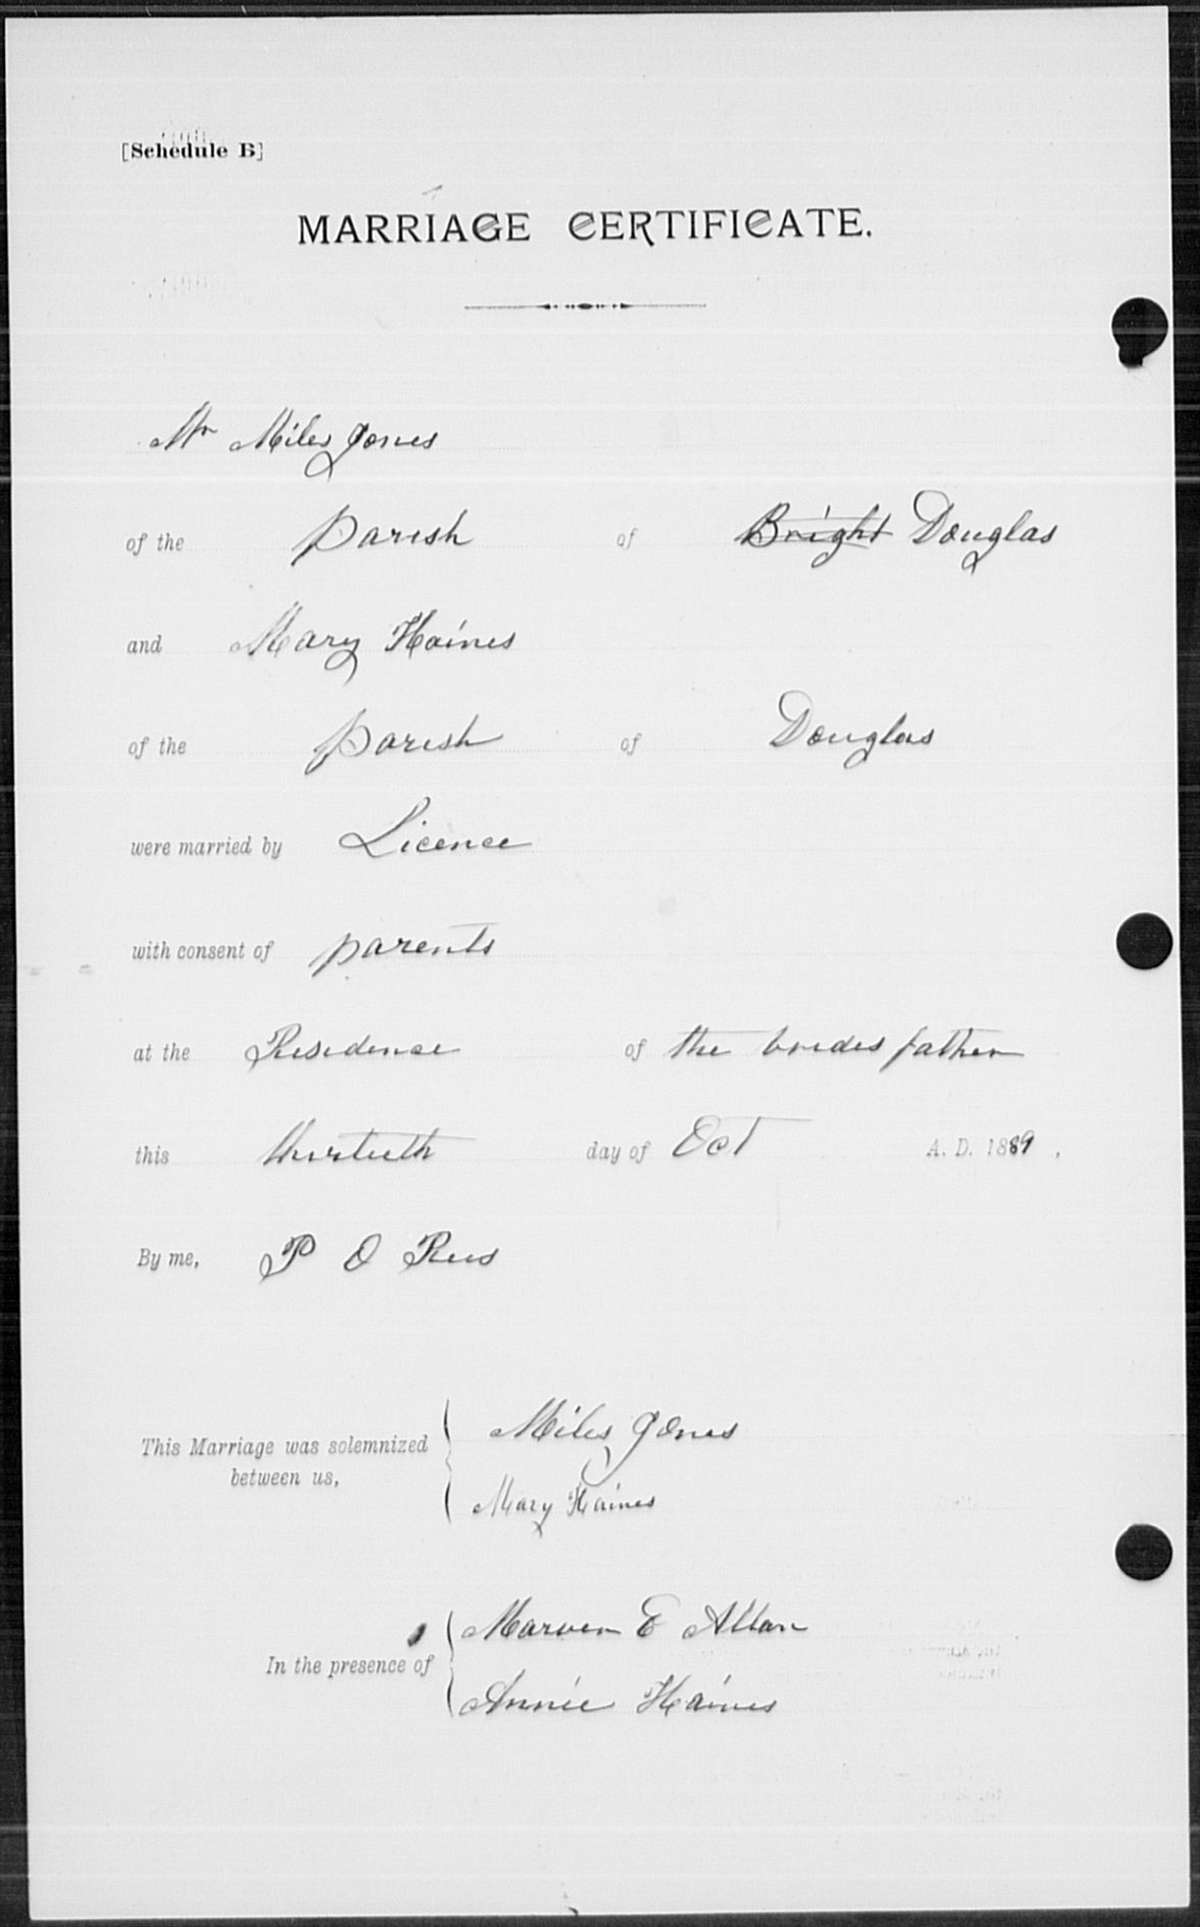 [Schedule B]
MARRIAGE CERTIFICATE.
Mr Miles Jones
of the Parish of Bright Douglas
and Mary Haines
of the Parish of Douglas
were married by Licence
with consent of parents
at the Residence of the brides father
this thirtieth day of Oct A. D. 1889.
By me, P O Rees
This Marriage was solemnized
between us,
Miles Jones
Mary Haines
In the presence of
Marven E Allan
Annie Haines